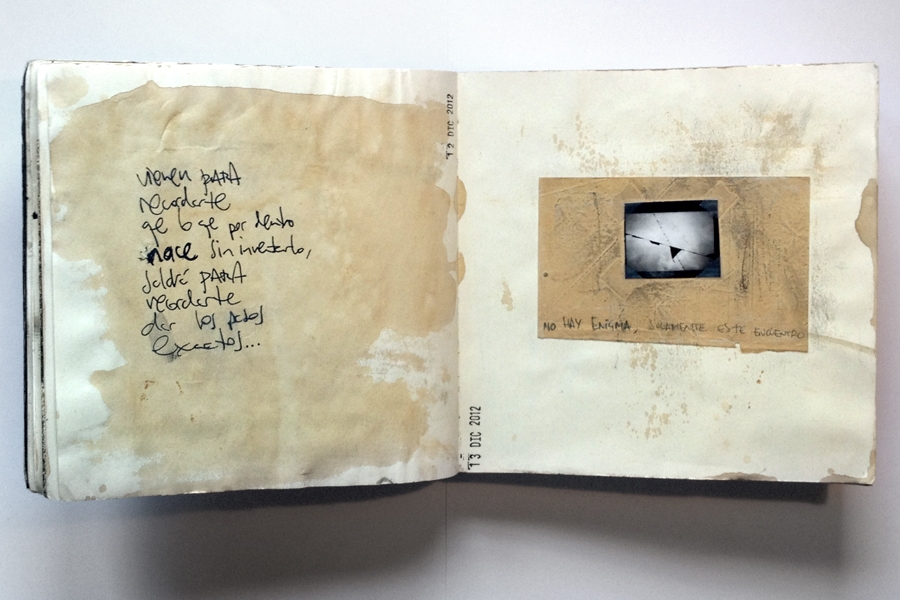 vienen PARA
recordarte
qe lo qe por dentro
nace sin inventarlo,
saldrá PARA
recordarte
dar los pasos
exactos...
12 DIC 2012
13 DIC 2012
NO HAY ENIGMA, SOLAMENTE ESTE ENCUENTRO